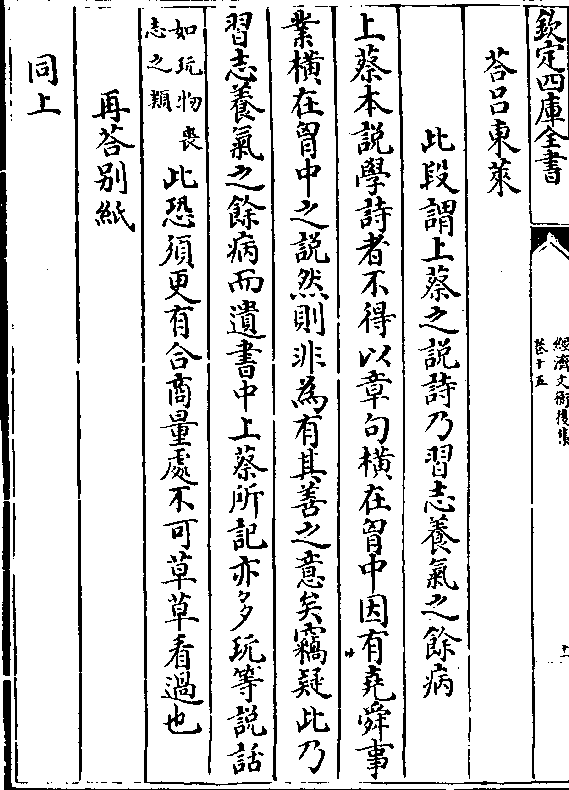 欽定四庫全書
經濟文衡後集
卷十五
荅吕東萊
此段謂上蔡之説詩乃習志養氣之餘病
上蔡本説學詩者不得以章句横在胷中因有堯舜事
業横在胷中之説然則非為有其善之意矣竊疑此乃
習志養氣之餘病而遺書中上蔡所記亦多玩等説話
如玩物喪
志之類
此恐須更有合商量處不可草草看過也
再荅别紙
同上